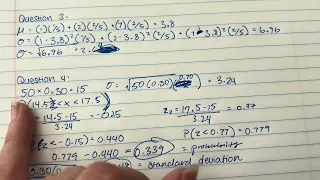 Question 3:
μ = (1)(1/5) + (2)(2/5) + (7)(2/5) = 3.8
σ = (1-3.8)² (1/5) + (2-3.8)² (2/5) + (7-3.8)² (2/5) = 6.96
σ = √6.96 = 2.
Question 4:
50 × 0.30 = 15 σ = √50(0.30)(0.70) = 3.24
(14.5 < x < 17.5)
= 14.5-15 / 3.24 = -0.15 z₂ = 17.5-15 / 3.24 = 0.77
P(z < -0.15) = 0.440 P(z < 0.77) = 0.779
0.779 - 0.440 = 0.339 = probability
= standard deviation